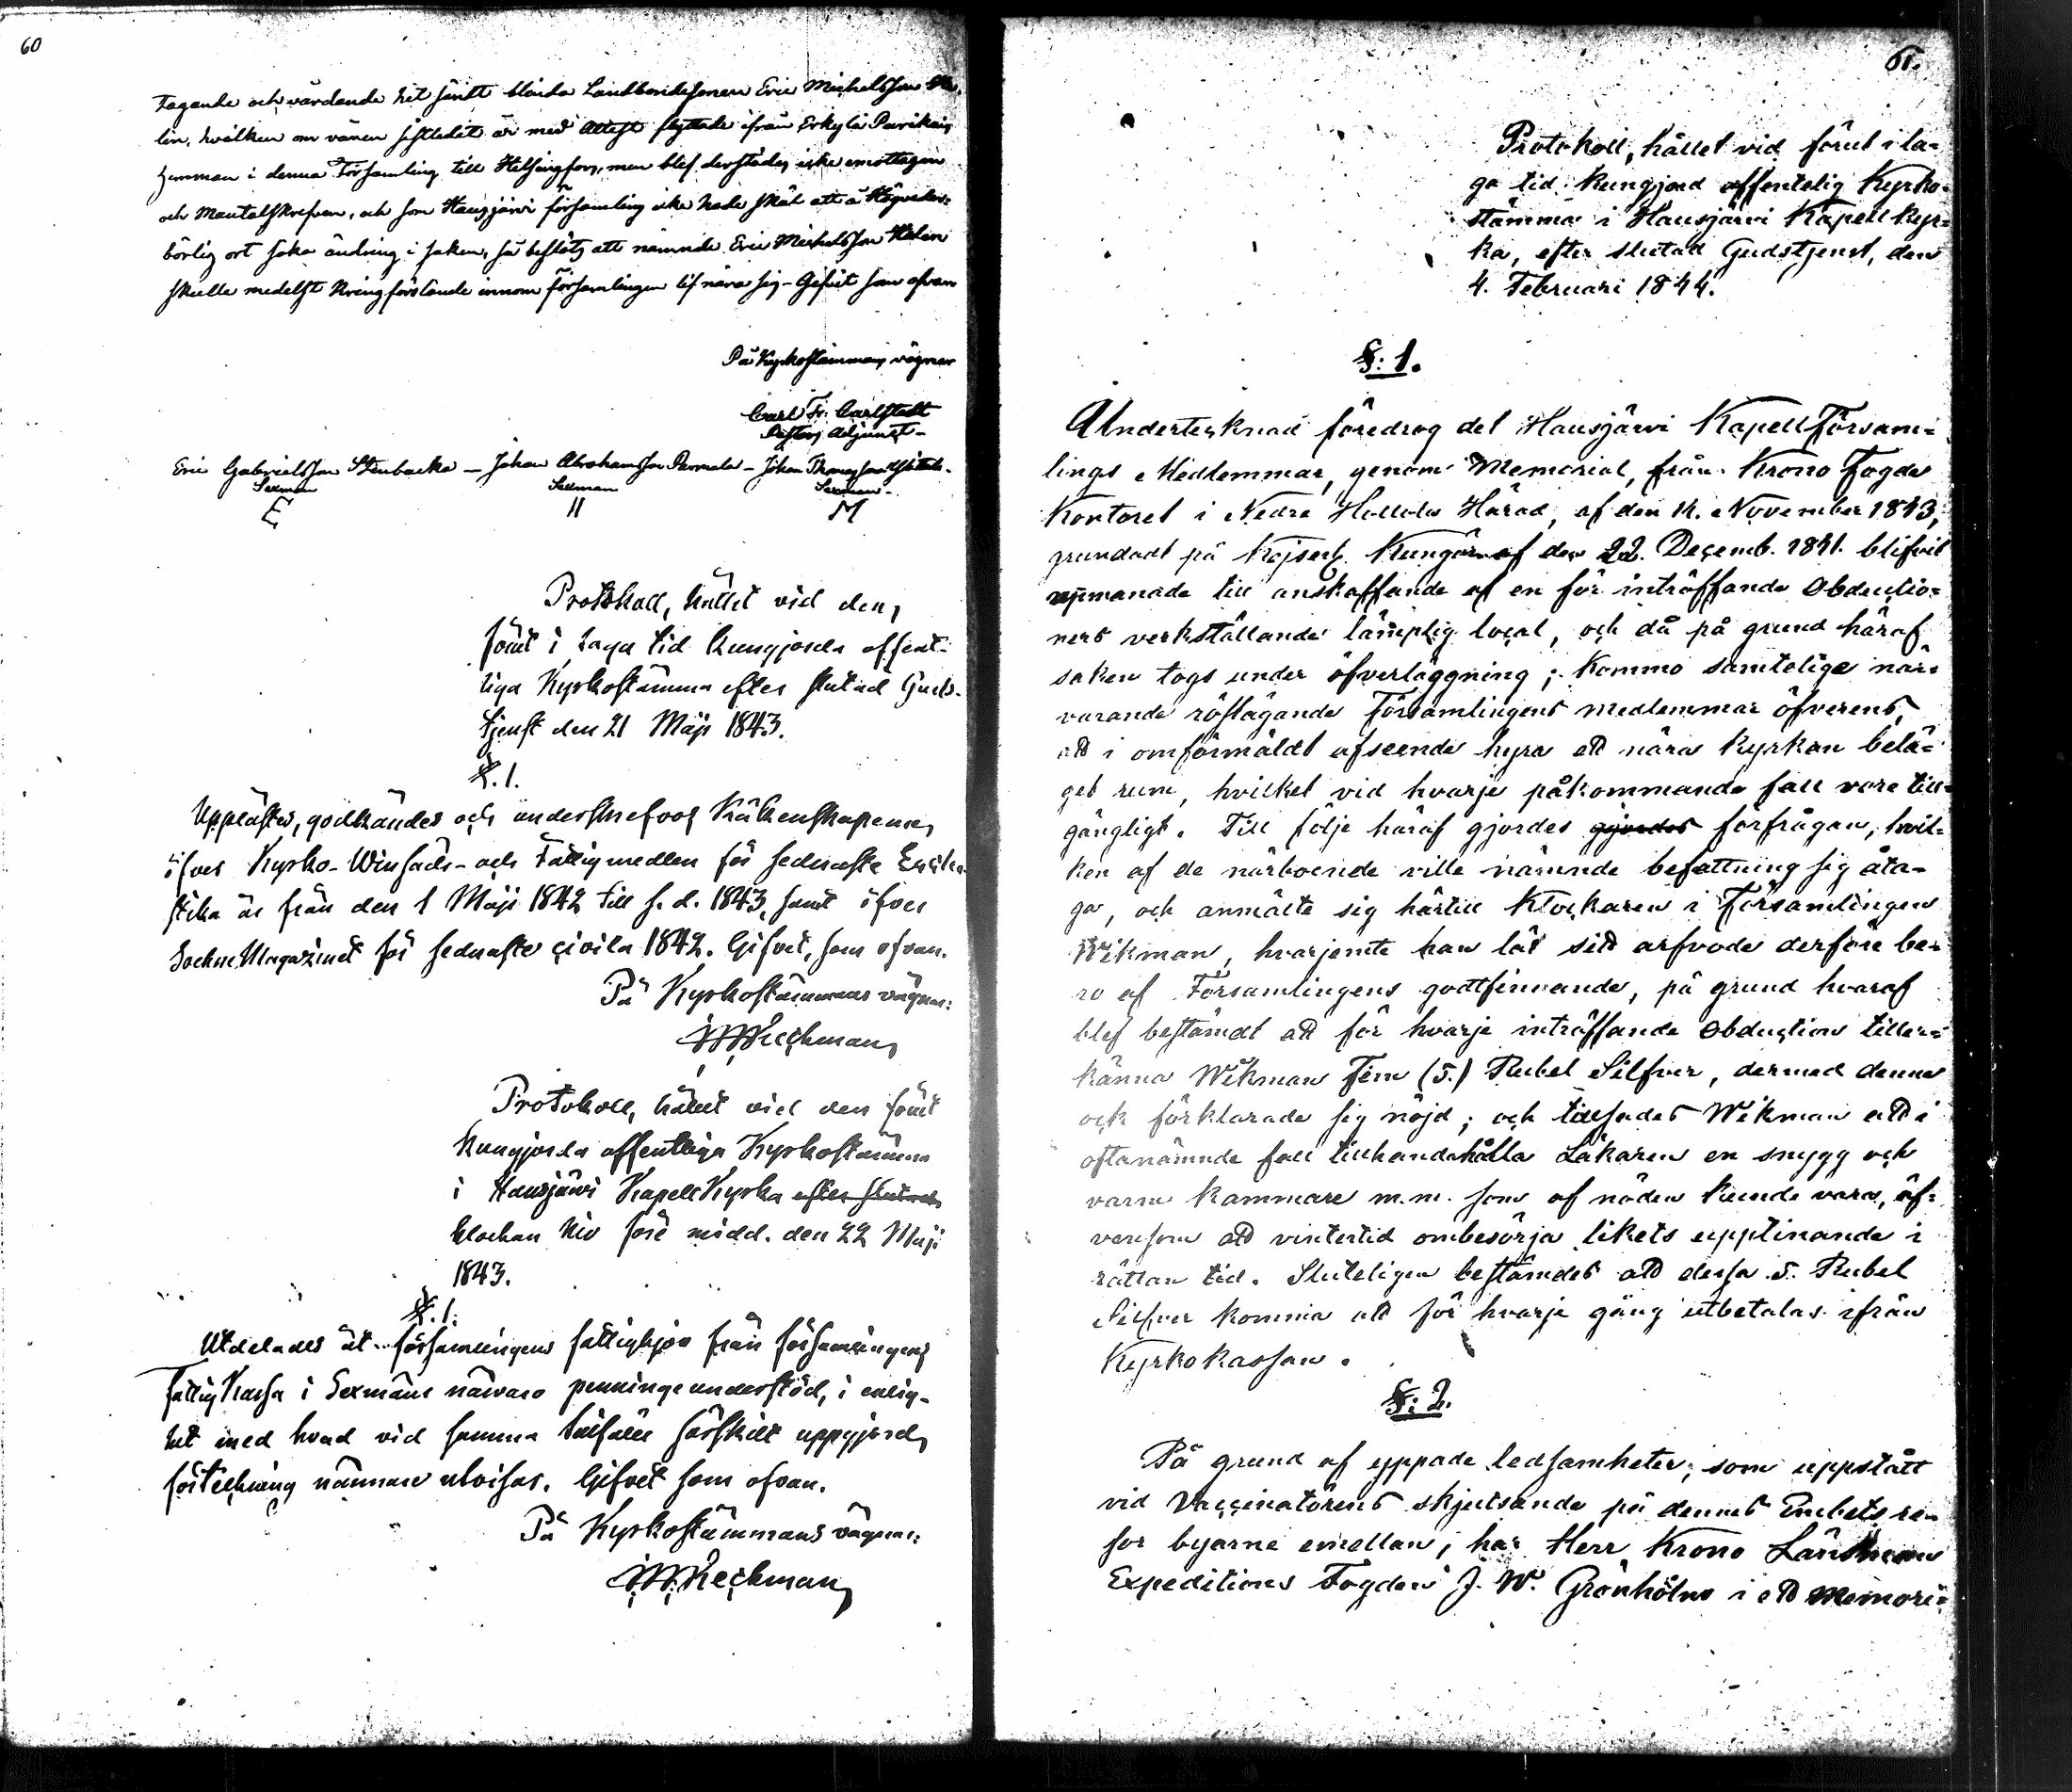 60
tagande och vårdande hit sändt blinda Landbondesonen Eric Michelsson He-
lin, hvilken om våren sistledet år med Attest flyttade ifrån Erkylä Parikais
hemman i denna Församling till Helsingfors, men blef derstädes icke emottagen
och Mantalskrefven, och som Hausjärvi församling icke hade skäl att å
börlig ort söka ändring i saken, så beslöts att nämnde Eric Michelsson Helin
skulle medelst kringförslände innom Församlingen lifnära sig - Gifvit som ofvan
På Kyrkostämmans vägnar
Carl Fr. Carlstedt
Pastors Adjunct -
Eric Gabrielsson Stenbacka - Johan Abrahamsson Parmala - Johan Thomasson
Sexman Sexman Sexman -
E II M
Protokoll, hållit vid den,
förut i laga tid kungjorda offent-
liga Kyrkostämma efter slutad Guds-
tjenst den 21 Maji 1843.
§. 1.
Upplästes, godkändes och underskrefvos Räkenskaperna
öfver Kyrko- Winsäds- och Fattigmedlen för sednaste Ecclesia-
stika år från den 1 Maji 1842 till s. d. 1843, samt öfver
Sockne Magazinet för sednaste civila 1842. Gifvit, som ofvan.
På Kyrkostämmans vägnar:
Protokoll, hållit vid den förut
kungjorda offentliga Kyrkostämma
i Hausjärvi Kapell Kyrka efter slutad
klockan Nio före midd. den 22 Maji
1843.
§. 1.
Utdelades åt församlingens fattighjon från församlingens
Fattig Kassa i Sexmäns närvaro penningeunderstöd, i enlig-
het med hvad vid samma tillfälle särskilt uppgjord
förteckning närmare utvisar. Gifvit som ofvan.
På Kyrkostämmans vägnar:
61.
Protokoll, hållet vid förut i la-
ga tid kungjord offentelig Kyrko-
stämma i Hausjärvi Kapell kyr-
ka, efter slutad Gudstjenst, den
4. Februari 1844.
§: 1.
Undertecknad föredrog det Hausjärvi Kapell Försam-
lings Medlemmar, genom Memorial, från Krono Fogde
Kontoret i Nedre Hollola Härad, af den 14. November 1843,
grundadt på Kejserl. Kungör. af den 22. Decemb. 1841. blifvit
upmanade till anskaffande af en för inträffande Obductio-
ners verkställande lämplig local, och då på grund häraf
saken togs under öfverläggning; kommo samtelige när-
varande röstägande Församlingens medlemmar öfverens,
att i omförmäldt afseende hyra ett nära Kyrkan belä-
get rum, hvilket vid hvarje påkommande fall vore till-
gängligt. Till följe häraf gjordes gjordes förfrågan, hvil-
ken af de närboende ville nämnde befattning sig åta-
ga, och anmälte sig härtill Klockaren i Församlingen
Wikman, hvarjemte han lät sitt arfvode derföre be-
ro af Församlingens godtfinnande, på grund hvaraf
blef bestämdt att för hvarje inträffande Obduction tiller-
känna Wikman Fem (5.) Rubel Silfver, dermed denne
ock förklarade sig nöjd; och tillsades Wikman att i
oftanämnde fall tillhandahålla Läkaren en snygg och
varm kammare m.m. som af nöden kunde vara, äf-
vensom att vintertid ombesörja likets upptinande i
rättan tid. Sluteligen bestämdes att dessa 5. Rubel
Silfver komma att för hvarje gång utbetalas ifrån
Kyrkokassan.
§: 2.
På grund af yppade ledsamheter, som uppstått
vid Vaccinatörens skjutsande på dennes Embets re-
sor byarne emellan, har Herr Krono Länsman
Expeditions Fogden J. W. Grönholm i ett Memori-